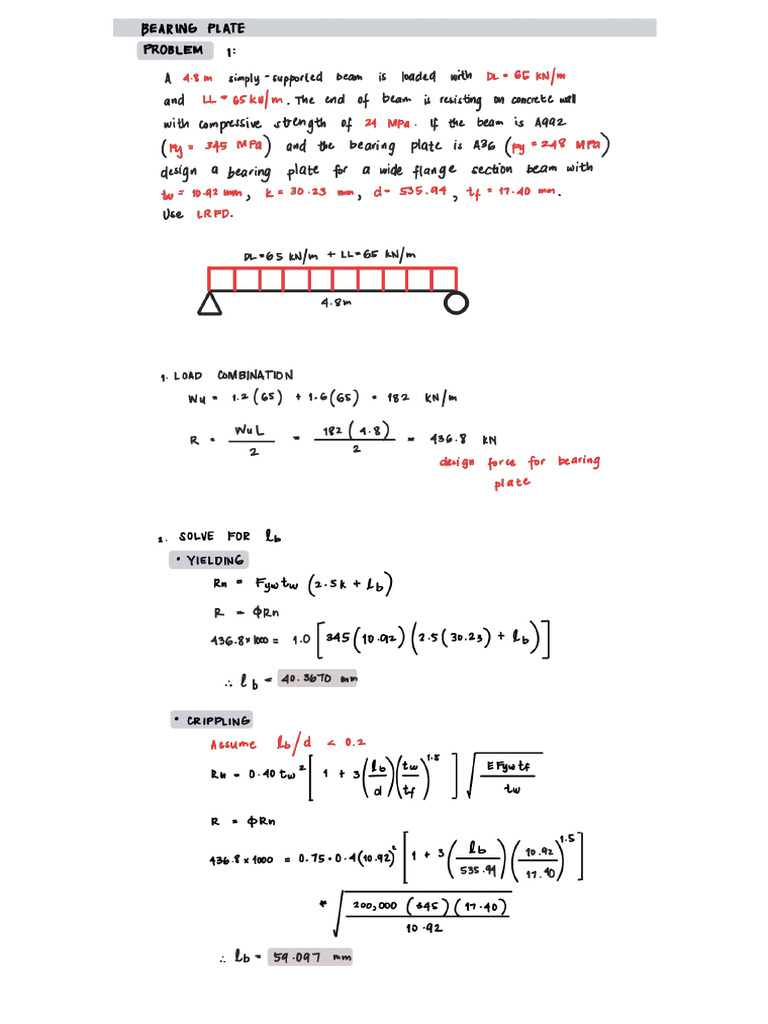 BEARING PLATE
PROBLEM 1:
A 4.8 m simply-supported beam is loaded with DL = 65 KN/m
and LL = 65 KN/m. The end of beam is resisting on concrete wall
with compressive strength of 21 MPa. If the beam is A992
(Fy = 345 MPa) and the bearing plate is A36 (Fy = 248 MPa)
design a bearing plate for a wide flange section beam with
tw = 10.92 mm, k = 30.23 mm, d = 535.94, tf = 17.40 mm.
Use LRFD.
DL = 65 KN/m + LL = 65 KN/m
4.8m
1. LOAD COMBINATION
Wu = 1.2(65) + 1.6(65) = 182 KN/m
R = WuL/2 = 182(4.8)/2 = 436.8 KN
design force for bearing
plate
2. SOLVE FOR lb
• YIELDING
Rn = Fyw tw (2.5k + lb)
R = ΦRn
436.8×1000 = 1.0 [345(10.92)(2.5(30.23) + lb)]
∴ lb = 40.3670 mm
• CRIPPLING
Assume lb/d < 0.2
Rn = 0.40 tw² [1 + 3(lb/d)(tw/tf)^1.5] √(E Fyw tf / tw)
R = ΦRn
436.8 × 1000 = 0.75 * 0.4(10.92)² [1 + 3(lb/535.94)(10.92/17.40)^1.5]
* √(200,000 (345)(17.40) / 10.92)
∴ lb = 59.097 mm